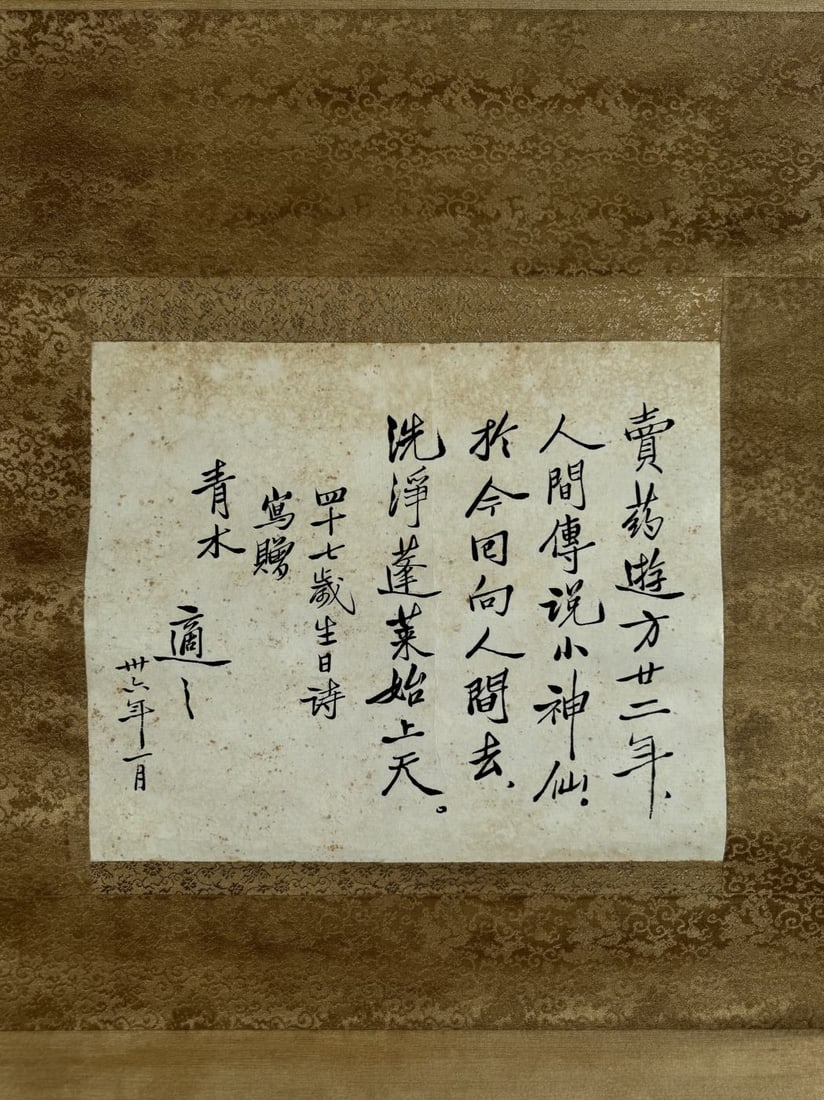 賣药遊方廿二年、
人間傳说小神仙.
於今回向人間去、
洗淨蓬莱始上天。
四十七歲生日诗
寫贈
青木
適之
卅六年一月